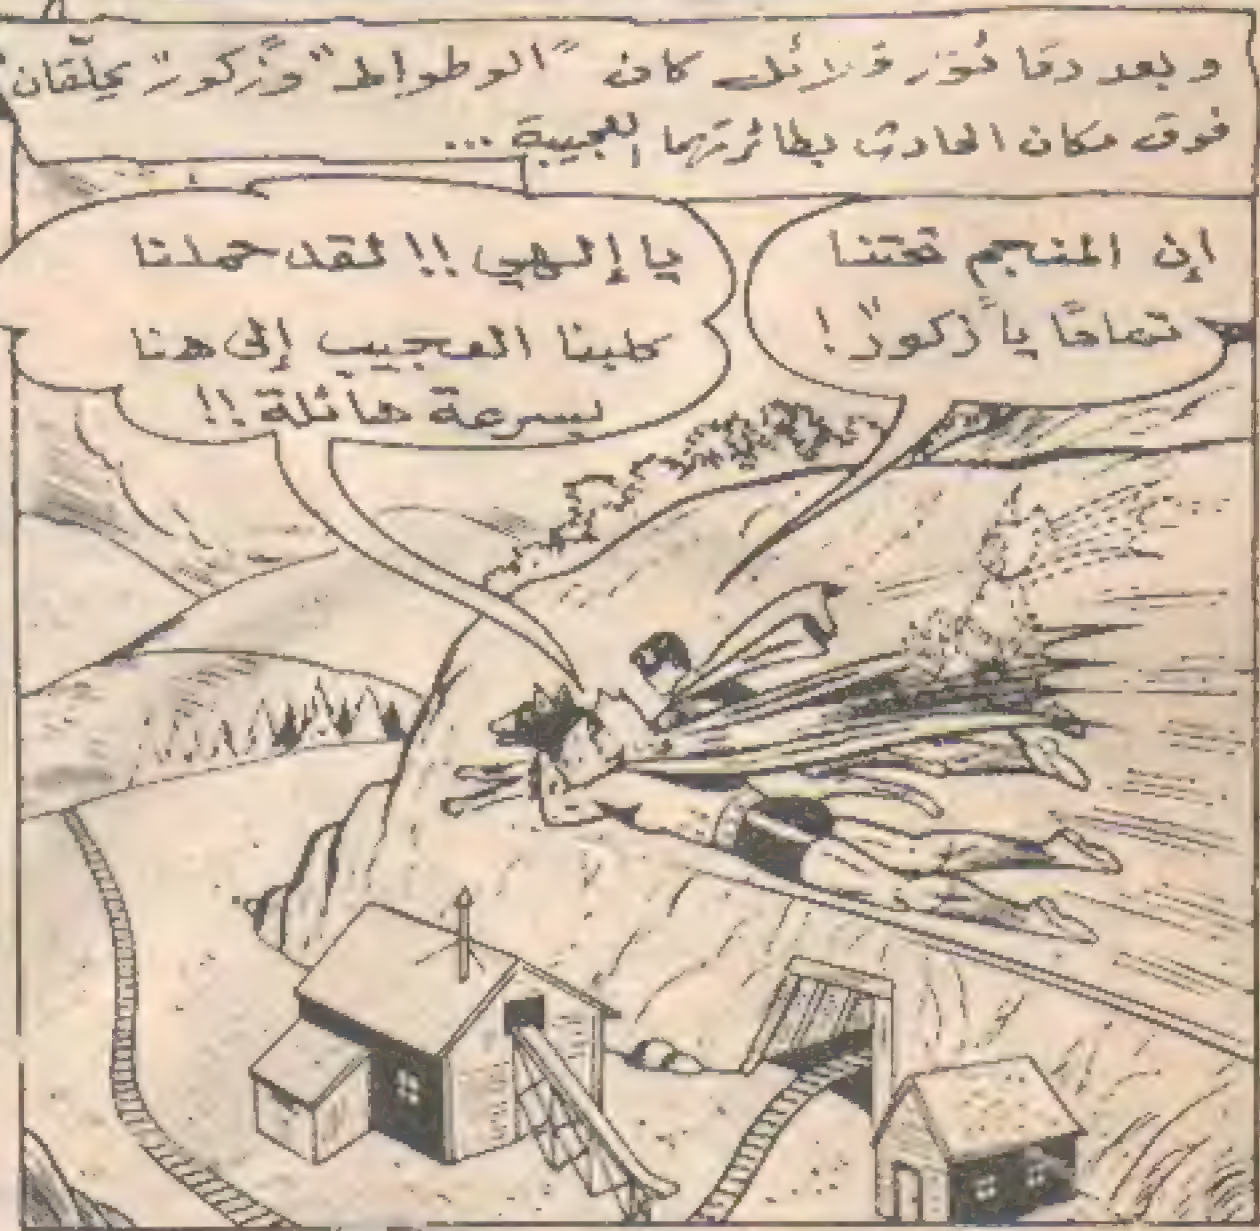 و بعد دقائق قلائل كان "الوطواط" و"زكور" يحلّقان
فوق مكان الحادث بطائرتهما العجيبة ...
إن المنجم تحتنا
تمامًا يا "زكور"!
يا إلهي !! لقد حملنا
كلبنا العجيب إلى هنا
بسرعة هائلة !!